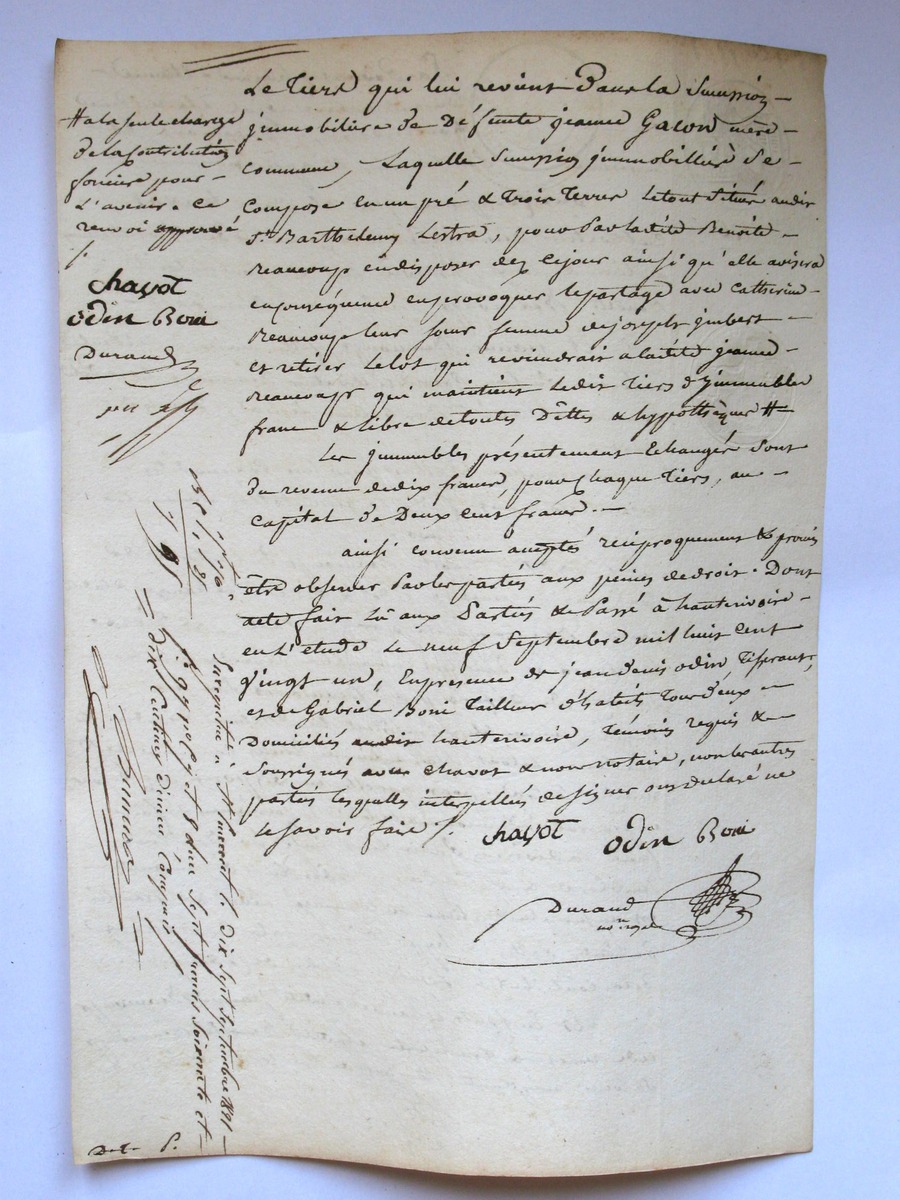 Le tiers qui lui revient dans la succession
immobilière de Défunte jeanne Gacon mère
commune, Laquelle succession jmmobillière se
compose en un pré & trois terres le tout situés audit
St. Barthelemy Lestra, pour par ladite Benoite
Beaucoup en disposer dez ce jour ainsi qu'elle avisera
en conséquence en provoquer le partage avec Catherine
Beaucoup leur sœur femme de joseph jmbert
et retirer le lot qui reviendrait a ladite jeanne
Beaucoup qui maintient ledit tiers d'jmmeubles
franc & libre de toutes Dettes & hypothèques #
Les jmmeubles présentement Echangés sont
du revenu de dix francs, pour chaque tiers, au
capital de Deux cent francs.
ainsi convenu accepté réciproquement & promis
être observer par les parties aux peines de droit. Dont
acte fait Lû aux Parties & Passé à hauterivoire
en L'étude Le neuf Septembre mil huit cent
vingt un, En présence de jean denis odin Tisserant,
et de Gabriel Boni Tailleur d'habits tous deux
Domiciliés audit hauterivoire, témoins requis &
soussignés avec chavot & nous notaire, non les autres
parties lesquelles interpellés de signer ont déclaré ne
le savoir faire /.
chavot odin Boni
Durand
no.re royal
# a la seule charge
de la contribution
foncière pour
L'avenir. ce
renvoi approuvé
/.
chavot
odin Boni
Durand
Enregistré à St Laurent le dix sept septembre 1821
f.° 97 r.° c.es et 8 deux sept francs soixante et
dix centimes dixieme compris